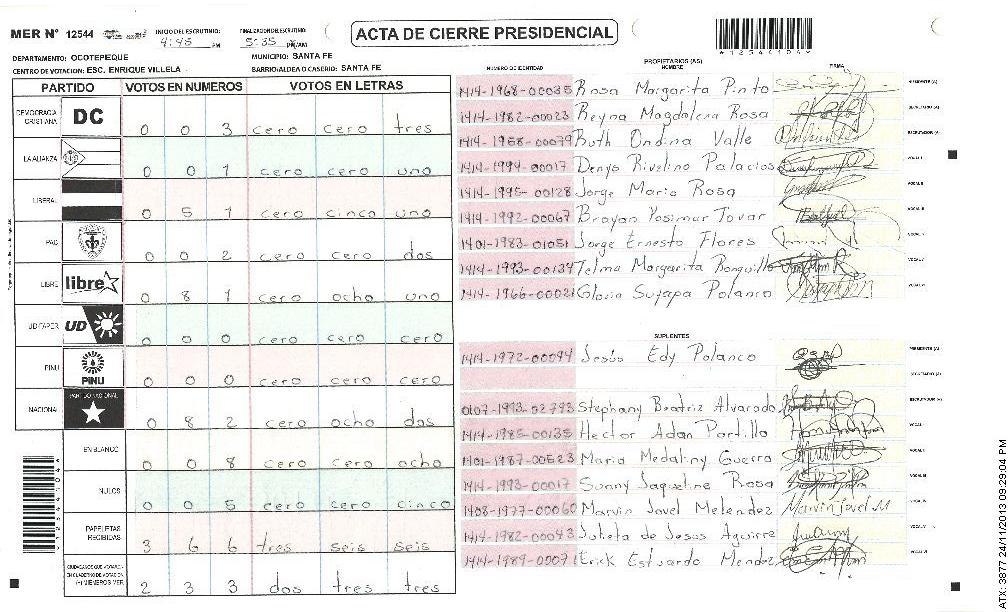 MER Nº 12544
INICIO DEL ESCRUTINIO: 4:45 PM
FINALIZACION DEL ESCRUTINIO: 5:35 PM/AM
ACTA DE CIERRE PRESIDENCIAL
*12544104*
DEPARTAMENTO: OCOTEPEQUE
MUNICIPIO: SANTA FE
CENTRO DE VOTACION: ESC. ENRIQUE VILLELA
BARRIO/ALDEA O CASERIO: SANTA FE
PARTIDO VOTOS EN NUMEROS VOTOS EN LETRAS
DEMOCRACIA CRISTIANA DC 0 0 3 cero cero tres
LA ALIANZA 0 0 1 cero cero uno
LIBERAL 0 5 1 cero cinco uno
PAC 0 0 2 cero cero dos
LIBRE libre 0 8 1 cero ocho uno
UD-FAPER UD 0 0 0 cero cero cero
PINU PINU 0 0 0 cero cero cero
NACIONAL PARTIDO NACIONAL 0 8 2 cero ocho dos
EN BLANCO 0 0 8 cero cero ocho
NULOS 0 0 5 cero cero cinco
PAPELETAS RECIBIDAS 3 6 6 tres seis seis
CIUDADANOS QUE VOTARON EN CUADERNO DE VOTACION (+) MIEMBROS MER 2 3 3 dos tres tres
PROPIETARIOS (AS)
NUMERO DE IDENTIDAD NOMBRE FIRMA
1414-1968-00035 Rosa Margarita Pinto PRESIDENTE (A)
1414-1982-00023 Reyna Magdalena Rosa SECRETARIO (A)
1414-1958-00079 Ruth Ondina Valle ESCRUTADOR (A)
1414-1994-00017 Denys Rivelino Palacios VOCAL I
1414-1995-00128 Jorge Mario Rosa VOCAL II
1414-1992-00067 Brayan Yosimar Tovar
1401-1983-01051 Jorge Ernesto Flores
1414-1993-00134 Telma Margarita Bonquillo
1414-1966-00021 Gloria Suyapa Polanco
SUPLENTES
1414-1972-00094 Jesus Edy Polanco PRESIDENTE (A)
SECRETARIO (A)
0107-1973-02793 Stephany Beatriz Alvarado ESCRUTADOR (A)
1414-1985-00135 Hector Adan Portillo
1401-1987-00523 Maria Medaliny Guerra
1414-1993-00017 Sunny Jaqueline Rosa
1408-1977-00060 Marvin Jovel Melendez Marvin Jovel M
1414-1982-00043 Julieta de Jesus Aguirre
1414-1989-00071 Erick Estuardo Mendez
ATX: 3877 24/11/2013 09:29:04 PM